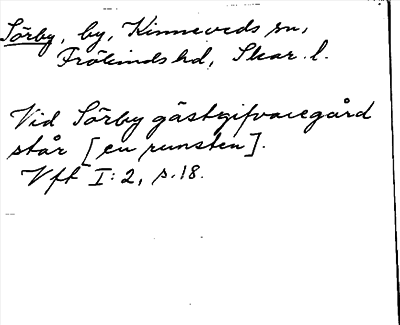 Sörby, by, Kinneveds sn,
Frökinds hd, Skar. l.
Vid Sörby gästgifvaregård
står [en runsten].
Vft I:2, s.18.